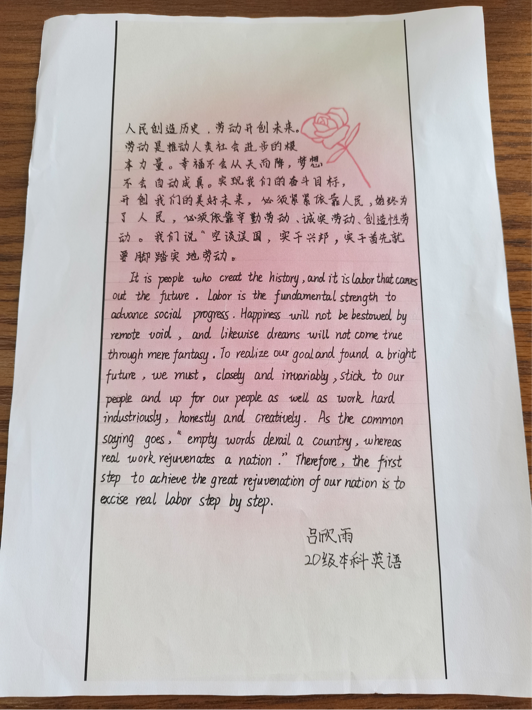 人民创造历史，劳动开创未来。
劳动是推动人类社会进步的根
本力量。幸福不会从天而降，梦想
不会自动成真。实现我们的奋斗目标，
开创我们的美好未来，必须紧紧依靠人民，始终为
了人民，必须依靠辛勤劳动、诚实劳动、创造性劳
动。我们说“空谈误国，实干兴邦，实干首先就
要脚踏实地劳动。
It is people who creat the history, and it is labor that carves
out the future. Labor is the fundamental strength to
advance social progress. Happiness will not be bestowed by
remote void, and likewise dreams will not come true
through mere fantasy. To realize our goal and found a bright
future, we must, closely and invariably, stick to our
people and up for our people as well as work hard
industriously, honestly and creatively. As the common
saying goes, “empty words derail a country, whereas
real work rejuvenates a nation.” Therefore, the first
step to achieve the great rejuvenation of our nation is to
excise real labor step by step.
吕欣雨
20级本科英语